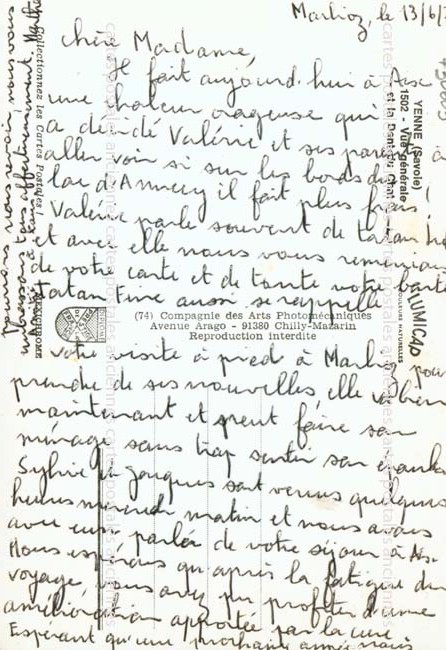 Marlioz, le 13/6/
Chère Madame,
Il fait aujourd'hui à Aix
une chaleur orageuse qui
a décidé Valérie et ses parents à
aller voir si sur les bords du
lac d'Annecy il fait plus frais!
Valérie parle souvent de tatan
et avec elle nous vous remercions
de votre carte et de toute votre bonté
tatan Fine aussi se rappelle
votre visite à pied à Marlioz pour
prendre de ses nouvelles, elle va bien
maintenant et peut faire son
ménage sans trop sentir son
Sylvie et Jacques sont venus quelques
heures mercredi matin et nous avons
avec eux parlé de votre séjour à Aix.
Nous espérons qu'après la fatigue du
voyage vous avez pu profiter d'une
amélioration apportée par la cure
Espérant qu'une prochaine année nous
pourrons nous revoir, nous vous
embrassons tous affectueusement. Marthe
Collectionnez les Cartes Postales
YENNE (Savoie)
1502 - Vue générale
et la Dent du Chat
COULEURS NATURELLES
LUMICAP
(74) Compagnie des Arts Photomécaniques
Avenue Arago - 91380 Chilly-Mazarin
Reproduction interdite
cartes postales anciennes